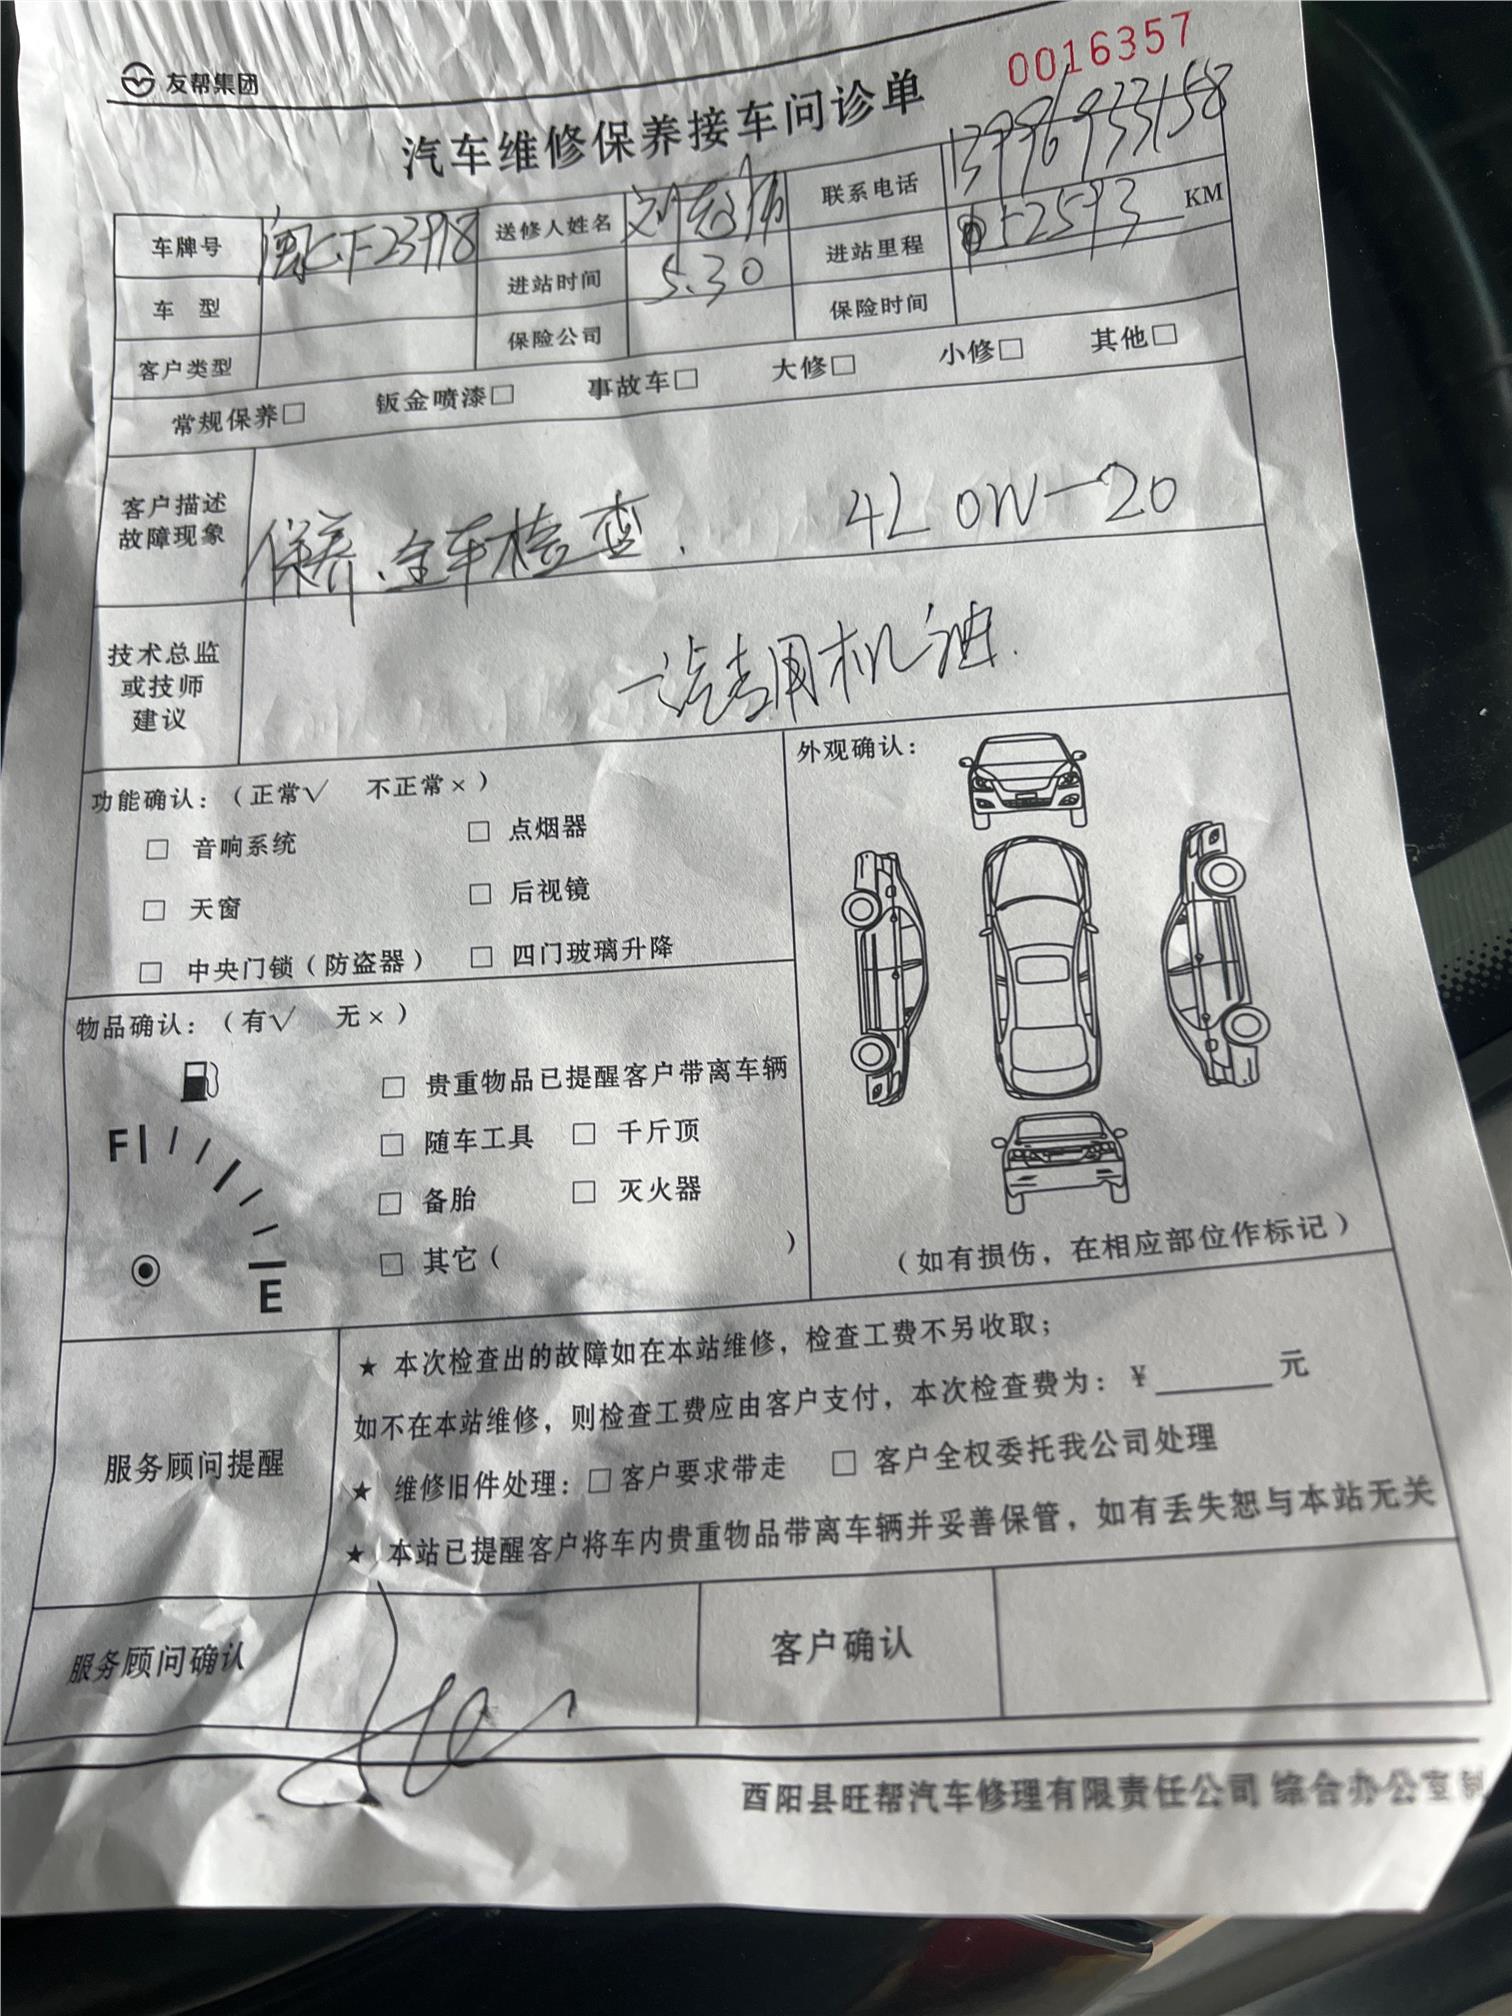 友帮集团
0016357
汽车维修保养接车问诊单
车牌号 闽C·F23918 送修人姓名 联系电话 13996933158
车 型 进站时间 5.30 进站里程 52593 KM
客户类型 保险公司 保险时间
常规保养□ 钣金喷漆□ 事故车□ 大修□ 小修□ 其他□
客户描述
故障现象
保养、全车检查. 4L 0W-20
技术总监
或技师
建议
一汽专用机油.
功能确认:(正常√ 不正常×)
□ 音响系统 □ 点烟器
□ 天窗 □ 后视镜
□ 中央门锁(防盗器) □ 四门玻璃升降
外观确认:
(如有损伤,在相应部位作标记)
物品确认:(有√ 无×)
F
E
□ 贵重物品已提醒客户带离车辆
□ 随车工具 □ 千斤顶
□ 备胎 □ 灭火器
□ 其它( )
服务顾问提醒
★ 本次检查出的故障如在本站维修,检查工费不另收取;
如不在本站维修,则检查工费应由客户支付,本次检查费为:¥______元
★ 维修旧件处理:□客户要求带走 □ 客户全权委托我公司处理
★ 本站已提醒客户将车内贵重物品带离车辆并妥善保管,如有丢失恕与本站无关
服务顾问确认 客户确认
酉阳县旺帮汽车修理有限责任公司 综合办公室制